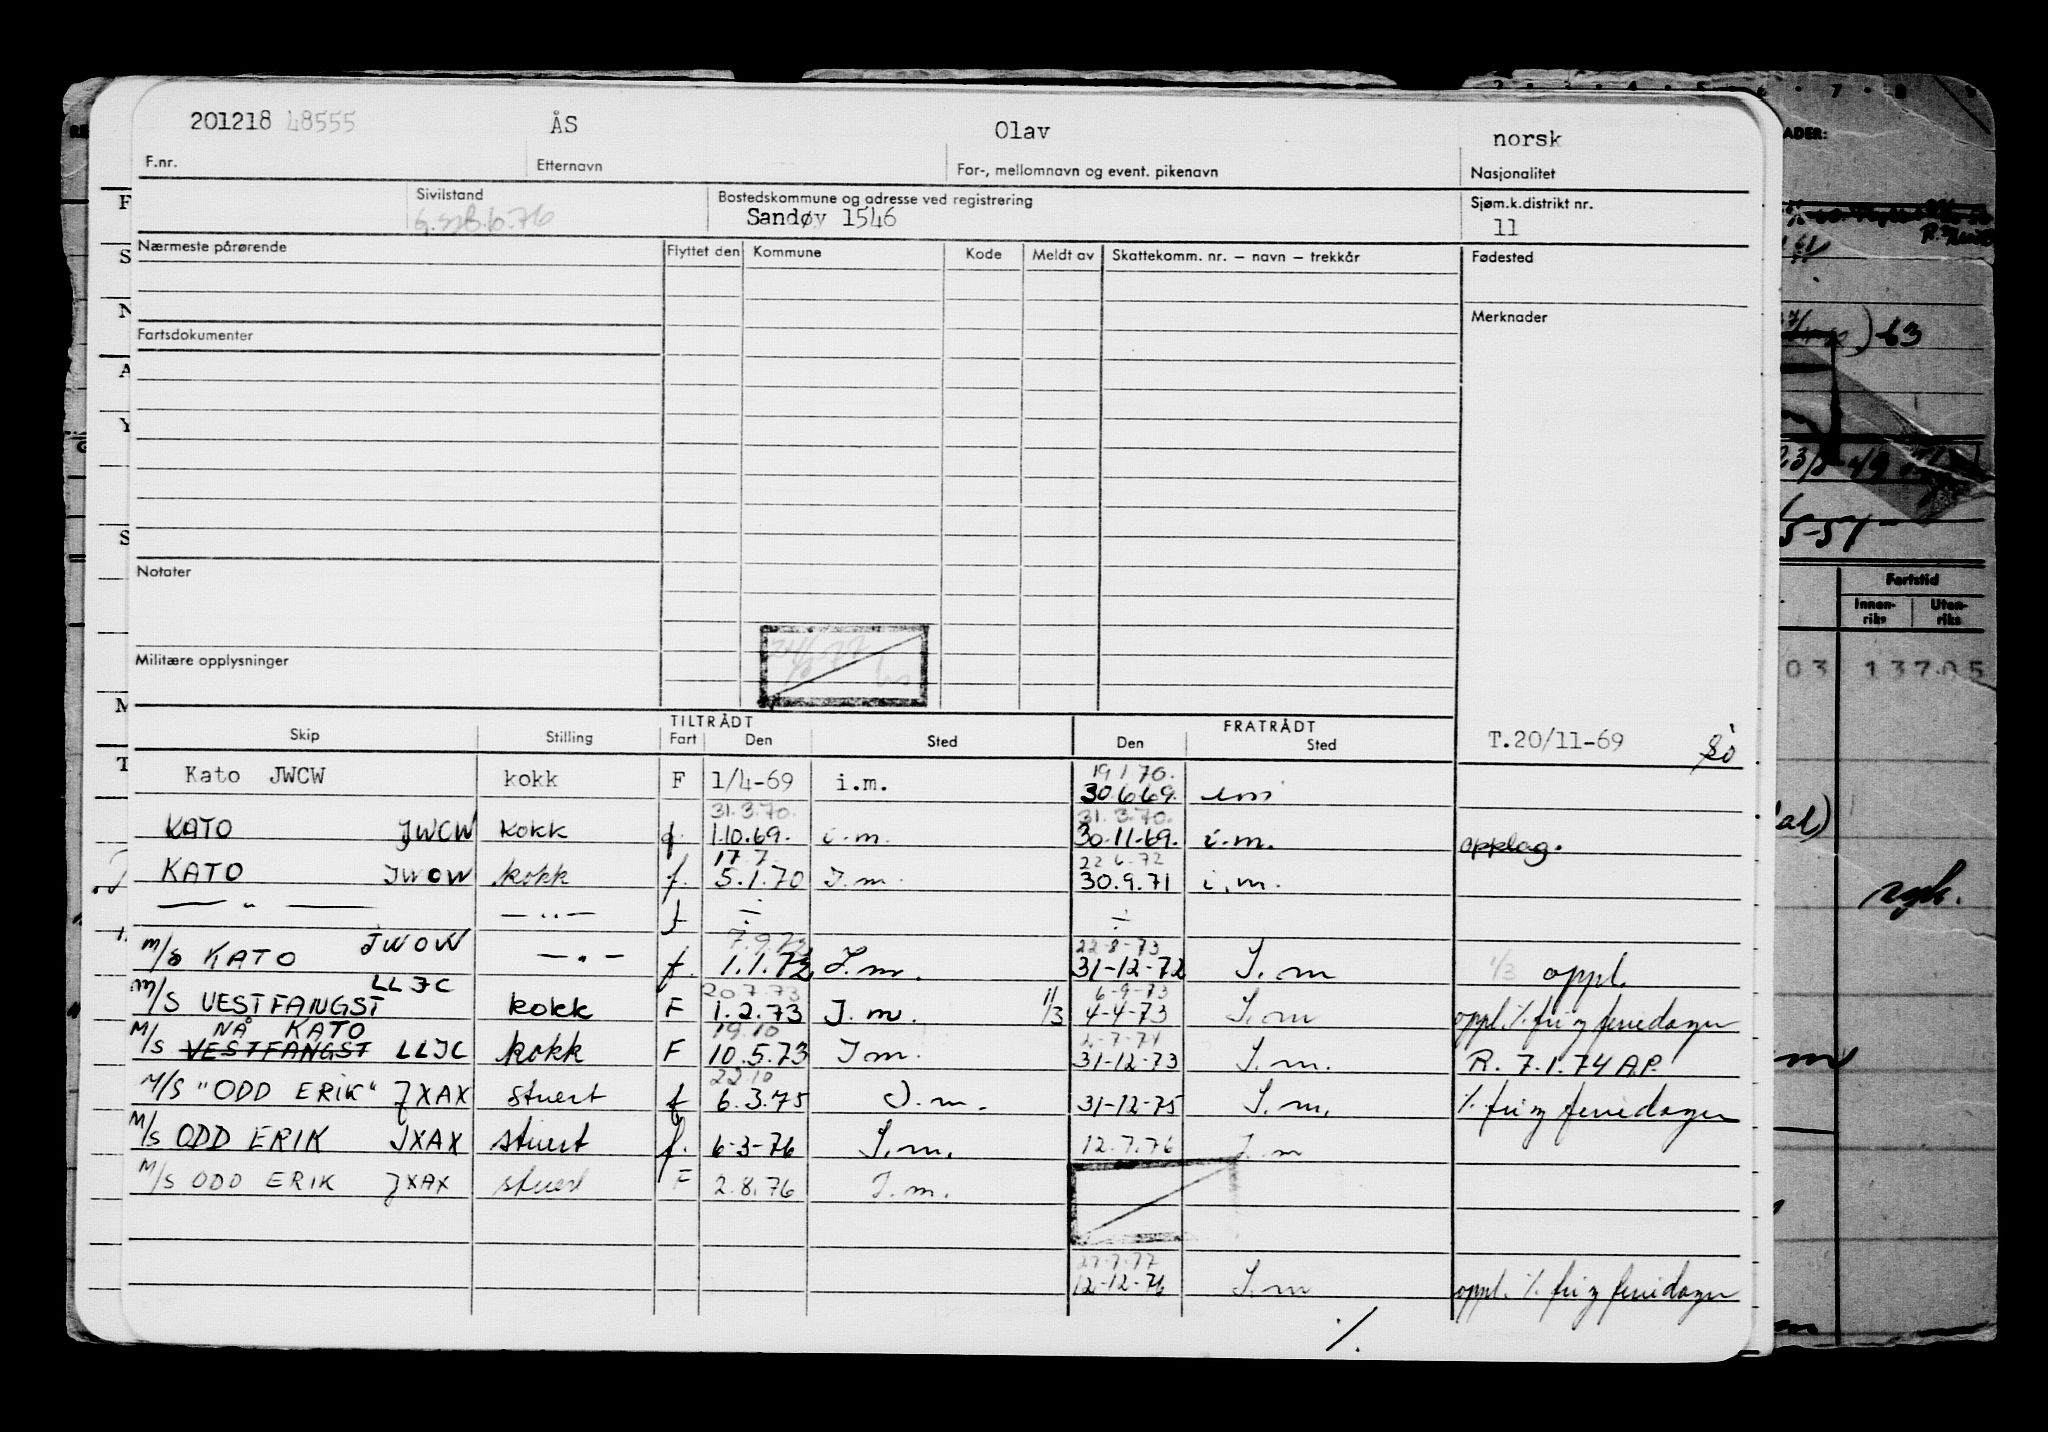 201218 48555 ÅS Olav norsk
F.nr. Etternavn For-, mellomnavn og event. pikenavn Nasjonalitet
Sivilstand Bostedskommune og adresse ved registrering Sjøm.k.distrikt nr.
Sandøy 1546 11
Nærmeste pårørende Flyttet den Kommune Kode Meldt av Skattekomm. nr. – navn – trekkår Fødested
Merknader
Fartsdokumenter
Notater
Militære opplysninger
TILTRÅDT FRATRÅDT
Skip Stilling Fart Den Sted Den Sted T.20/11-69
19 1 70.
Kato JWCW kokk F 1/4-69 i.m. 30.6.69.
31.3.70. 31.3.70.
KATO JWCW kokk f. 1.10.69. i.m. 30.11.69. i.m. opplag.
17.7. 22 6.72
KATO JWOW kokk f. 5.1.70 I.m. 30.9.71 i.m.
— " — — " — f ÷ ÷
7.9.72 22-8-73
M/S KATO JWOW — " — f. 1.1.72 I.m. 31-12-72 I.m 1/3 oppl.
LLJC 20.7.73 6-9-73
M/S VESTFANGST kokk F 1.2.73 I.m. 11/3 4-4-73 I.m oppl. % fri og feriedager
NÅ KATO 19.10 2-7-74
M/S VESTFANGST LLJC kokk F 10.5.73 I m. 31-12-73 I.m. R. 7.1.74 A.P.
22.10
M/S "ODD ERIK" JXAX stuert f 6.3.75 I.m. 31-12-75 I.m. % fri og feriedager
M/S ODD ERIK JXAX stuert f. 6-3-76 I.m. 12.7.76 I.m
M/S ODD ERIK JXAX stuert F 2.8.76 I.m.
27-7-77
12-12-76 I.m oppl. % fri og feriedager
%
2 · 3 · 4 · 5 · 6 · 7 · 8 · 9
ADER:
63
5-57
Fartstid
Innen-
riks
Uten-
riks
03 13705